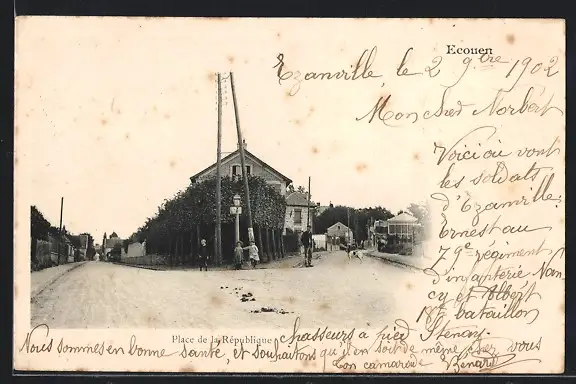 Ecouen
Ezanville, le 2 9bre 1902
Mon cher Norbért
Voici où vont
les soldats
d'Ezanville:
Ernest au
79e régiment
d'infanterie Nan-
cy et Albért
18e bataillon
Place de la République
chasseurs à pied Stenay.
Nous sommes en bonne santé, et souhaitons qu'il en soit de même chez vous
ton camarade Benard